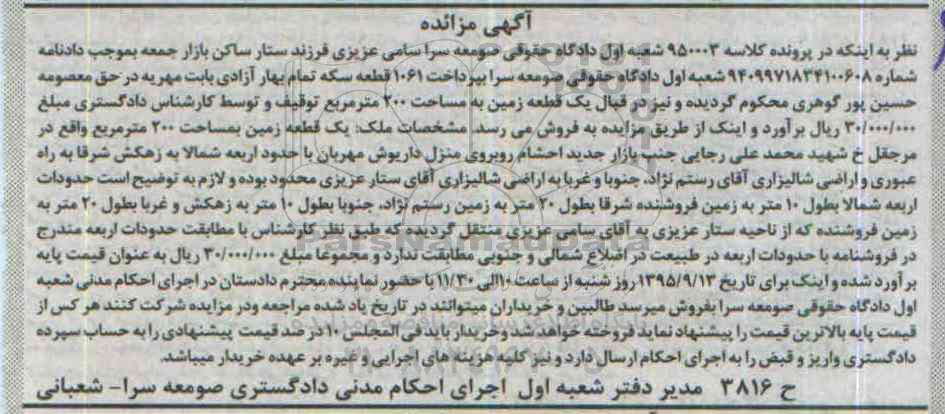 آگهی مزائده
نظر به اینکه در پرونده کلاسه ۹۵۰۰۰۳ شعبه اول دادگاه حقوقی صومعه سرا سامی عزیزی فرزند ستار ساکن بازار جمعه بموجب دادنامه
شماره ۹۴۰۹۹۷۱۸۳۴۱۰۰۶۰۸ شعبه اول دادگاه حقوقی صومعه سرا بپرداخت ۱۰۶۱ قطعه سکه تمام بهار آزادی بابت مهریه در حق معصومه
حسین پور گوهری محکوم گردیده و نیز در قبال یک قطعه زمین به مساحت ۲۰۰ مترمربع توقیف و توسط کارشناس دادگستری مبلغ
۳۰/۰۰۰/۰۰۰ ریال برآورد و اینک از طریق مزایده به فروش می رسد. مشخصات ملک: یک قطعه زمین بمساحت ۲۰۰ مترمربع واقع در
مرجقل خ شهید محمد علی رجایی جنب بازار جدید احشام روبروی منزل داریوش مهربان با حدود اربعه شمالا به زهکش شرقا به راه
عبوری و اراضی شالیزاری آقای رستم نژاد، جنوبا و غربا به اراضی شالیزاری آقای ستار عزیزی محدود بوده و لازم به توضیح است حدودات
اربعه شمالا بطول ۱۰ متر به زمین فروشنده شرقا بطول ۲۰ متر به زمین رستم نژاد، جنوبا بطول ۱۰ متر به زهکش و غربا بطول ۲۰ متر به
زمین فروشنده که از ناحیه ستار عزیزی به آقای سامی عزیزی منتقل گردیده که طبق نظر کارشناس با مطابقت حدودات اربعه مندرج
در فروشنامه با حدودات اربعه در طبیعت در اضلاع شمالی و جنوبی مطابقت ندارد و مجموعا مبلغ ۳۰/۰۰۰/۰۰۰ ریال به عنوان قیمت پایه
برآورد شده و اینک برای تاریخ ۱۳۹۵/۹/۱۳ روز شنبه از ساعت ۱۰ الی ۱۱/۳۰ با حضور نماینده محترم دادستان در اجرای احکام مدنی شعبه
اول دادگاه حقوقی صومعه سرا بفروش میرسد طالبین و خریداران میتوانند در تاریخ یاد شده مراجعه ودر مزایده شرکت کنند هر کس از
قیمت پایه بالاترین قیمت را پیشنهاد نماید فروخته خواهد شد وخریدار باید فی المجلس ۱۰ در صد قیمت پیشنهادی را به حساب سپرده
دادگستری واریز و قبض را به اجرای احکام ارسال دارد و نیز کلیه هزینه های اجرایی و غیره بر عهده خریدار میباشد.
ح ۳۸۱۶ مدیر دفتر شعبه اول اجرای احکام مدنی دادگستری صومعه سرا- شعبانی
ParsNamadData